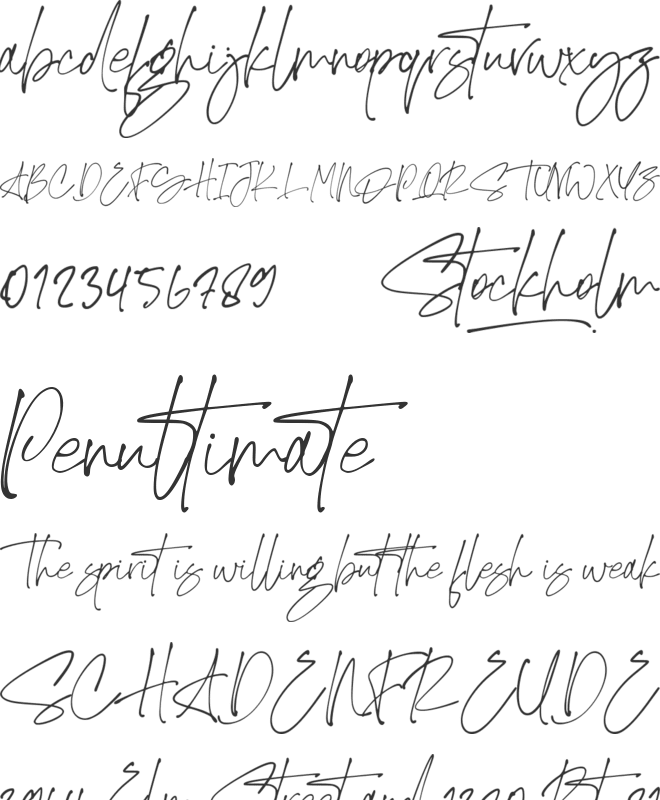 abcdefghijklmnopqrstuvwxyz
ABCDEFGHIJKLMNOPQRSTUVWXYZ
0123456789 Stockholm
Penultimate
The spirit is willing but the flesh is weak
SCHADENFREUDE
Elm Street and